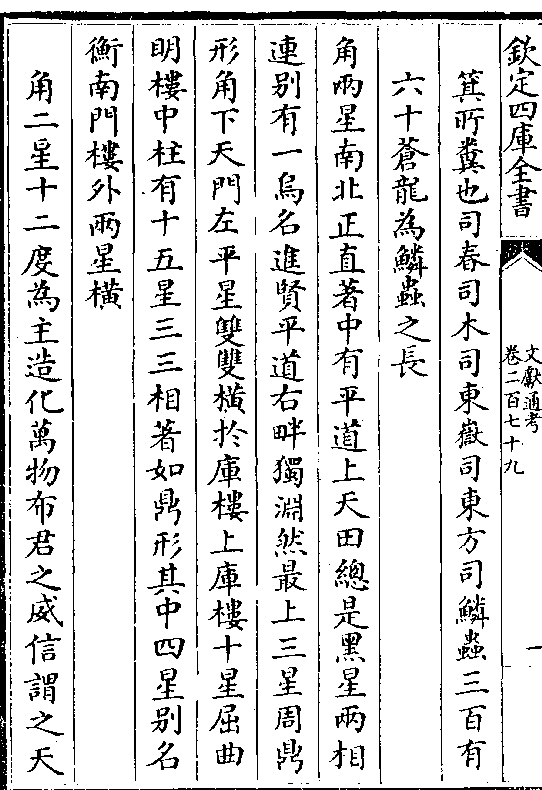 欽定四庫全書
文獻通考
卷二百七十九
一
箕所糞也司春司木司東嶽司東方司鱗蟲三百有
六十蒼龍為鱗蟲之長
角兩星南北正直著中有平道上天田總是黑星兩相
連别有一烏名進賢平道右畔獨淵然最上三星周鼎
形角下天門左平星雙雙橫於庫樓上庫樓十星屈曲
明樓中柱有十五星三三相著如鼎形其中四星别名
衡南門樓外兩星橫
角二星十二度為主造化萬物布君之威信謂之天